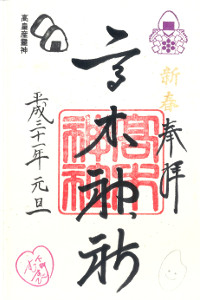 新春
奉拝
高木神社
高木神社
平成三十一年 元旦
高皇産靈神